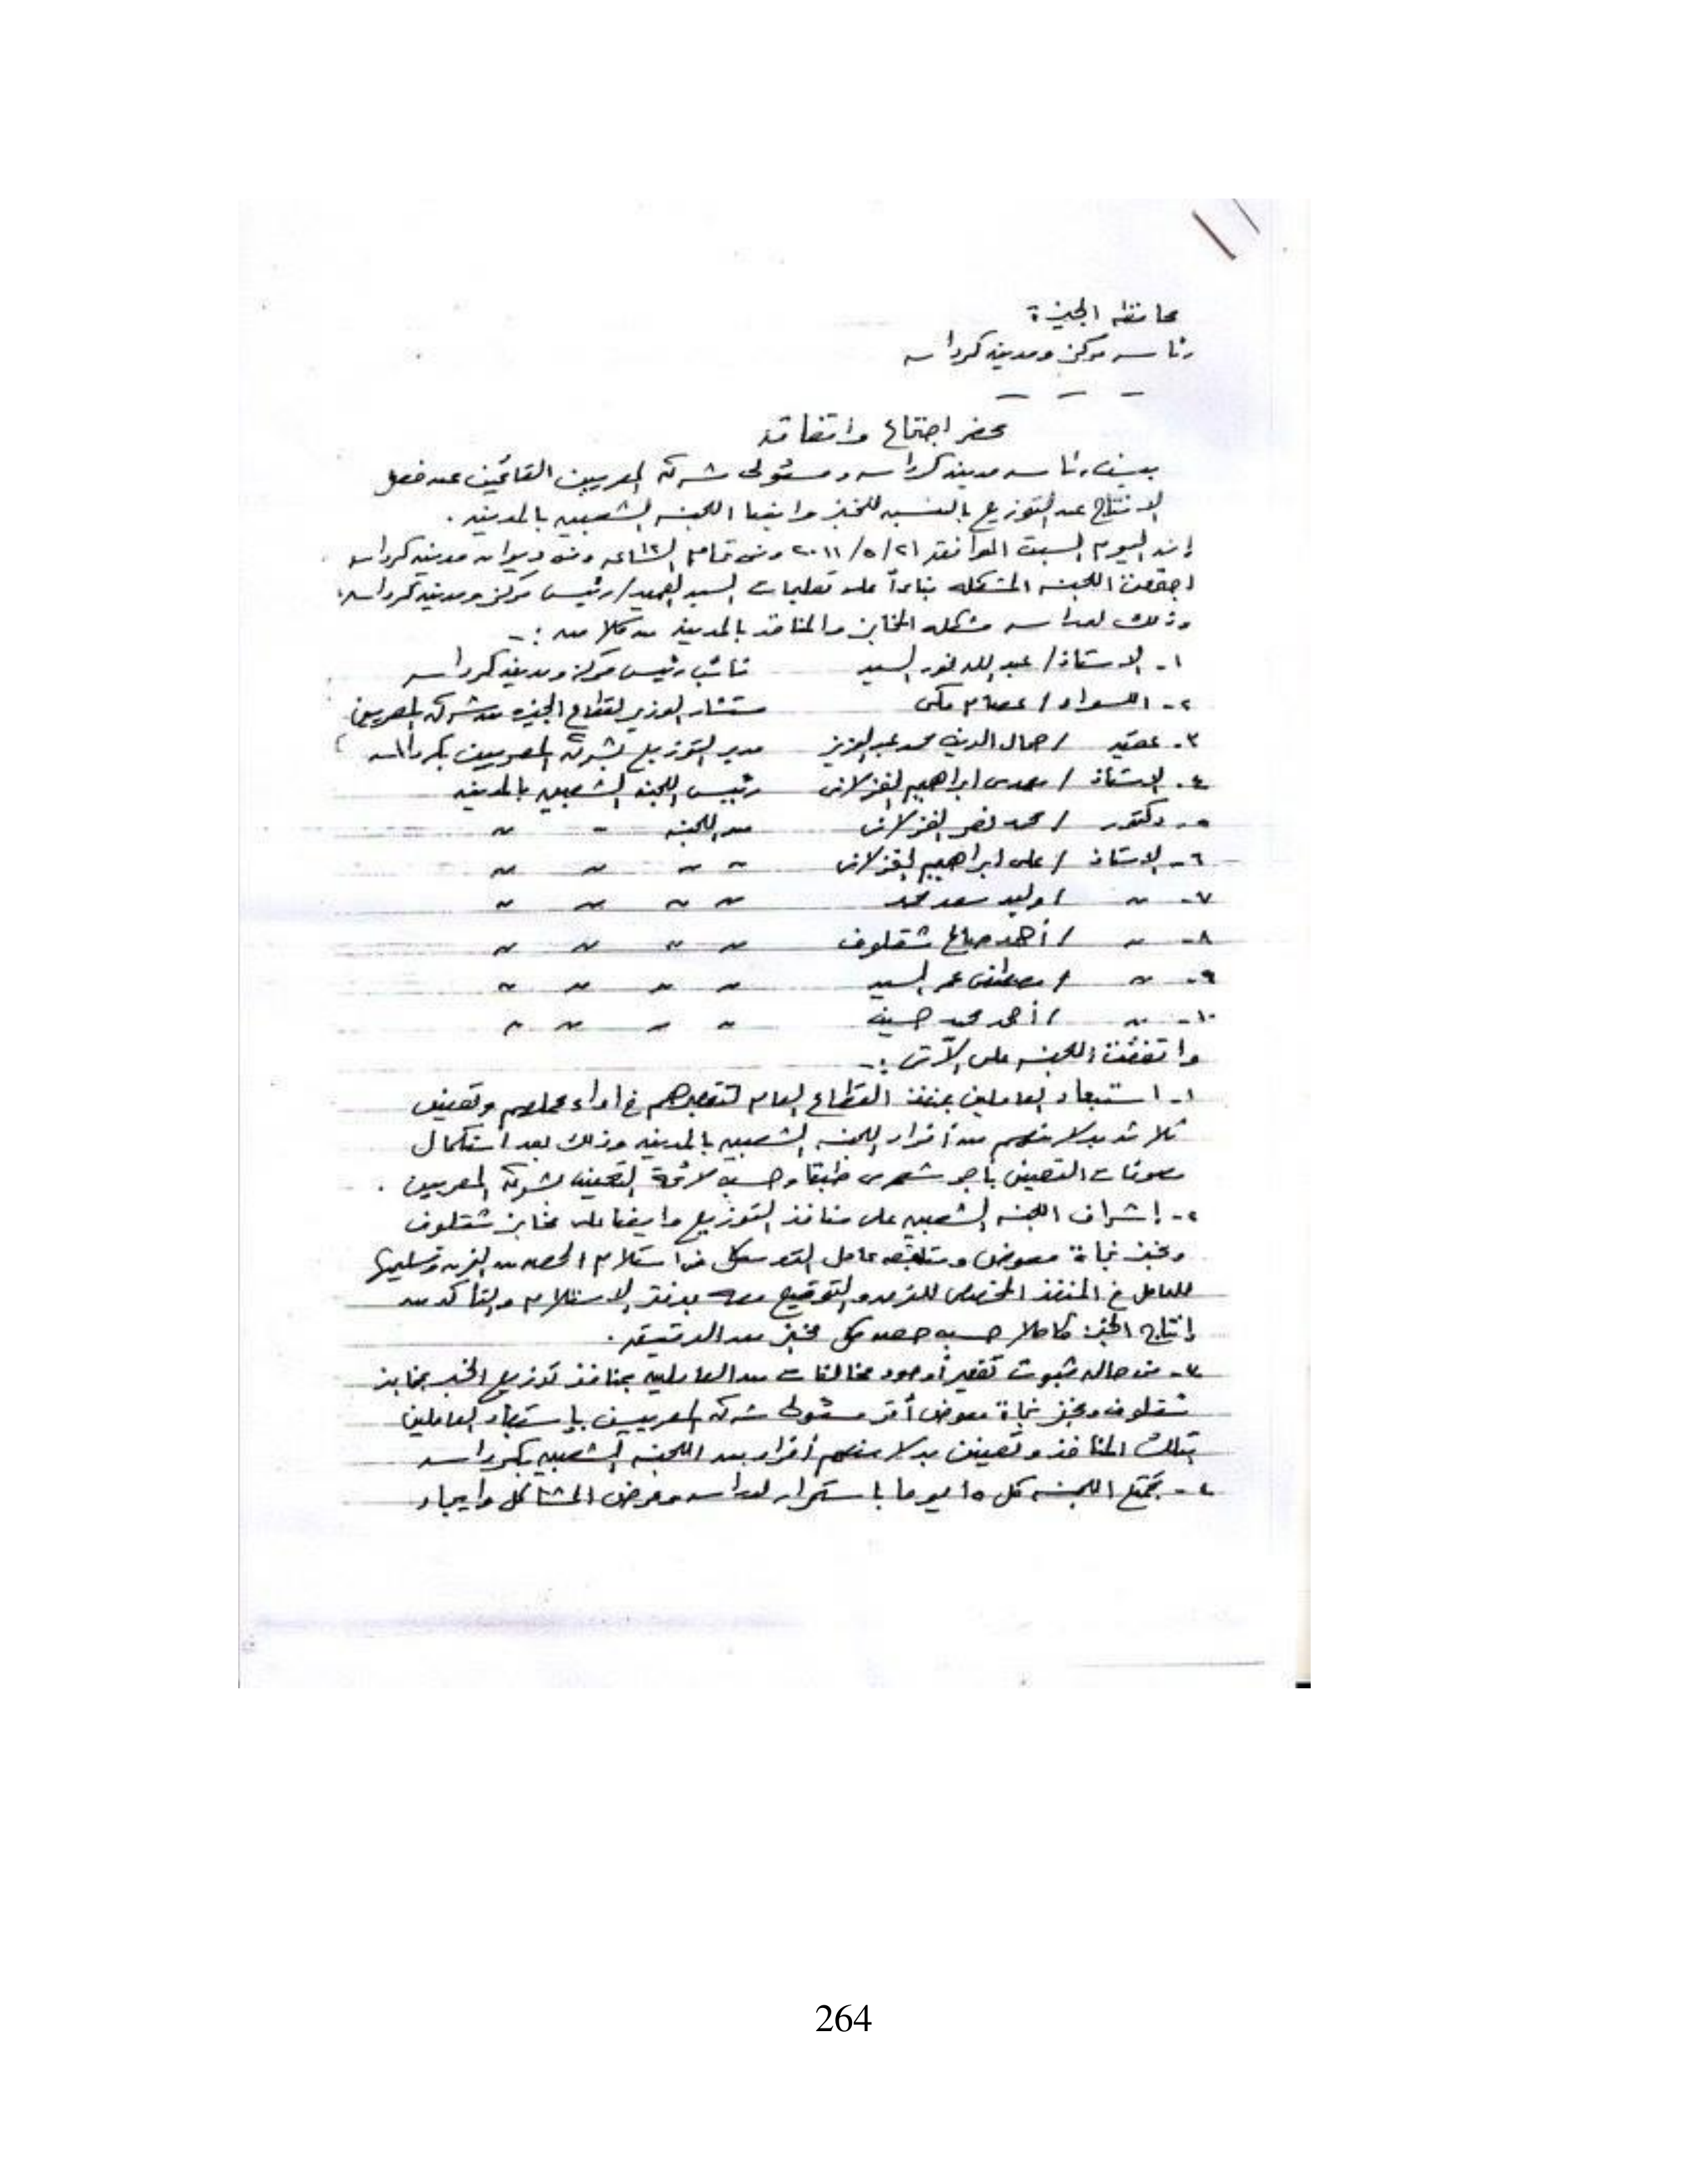 محافظه الجيزة
رئاسه مركز ومدينه كرداسه
محضر اجتماع واتفاق
بين رئاسه مدينه كرداسه ومسئولى شركه المصريين القائمين عن فصل
الانتاج عن التوزيع بالنسبه للخبز وايضا اللجنه الشعبيه بالمدينه .
إنه اليوم السبت الموافق ٢١/ ٥/ ٢٠١١ وفى تمام الساعه ١٢ وفى ديوان مدينه كرداسه
اجتمعت اللجنه المشكله بناءاً على تعليمات السيد العميد/ رئيس مركز ومدينه كرداسه
وذلك لدراسه مشكله المخابز والمنافذ بالمدينه من كلا من :-
١- الاستاذ/ عبد الله نور السيد نائب رئيس مركز ومدينه كرداسه
٢- اللواء / عصام مكى مستشار الوزير لقطاع الجيزه من شركه المصريين
٣- عقيد / جمال الدين محمد عبد العزيز مدير التوزيع بشركة المصريين بكرداسه
٤- الاستاذ / مجدى ابراهيم الغزلانى رئيس اللجنه الشعبيه بالمدينه
٥- دكتور / محمد نصر الغزلانى من اللجنه - "
٦- الاستاذ / على ابراهيم الغزلانى " " " "
٧- " / وليد سعد محمد " " " "
٨- " / أحمد صالح شقلوف " " " "
٩- " / مصطفى عمر السيد " " " "
١٠- " / أحمد محمد حسين " " " "
واتفقت اللجنه على الآتى :-
١- استبعاد العاملين بمنفذ القطاع العام لتقصيرهم فى اداء عملهم وتعيين
ثلاثه بدلا منهم من أفراد اللجنه الشعبيه بالمدينه وذلك بعد استكمال
مسوغات التعيين بأجر شهرى طبقا وحسب لائحة التعيين بشركة المصريين .
٢- إشراف اللجنه الشعبيه على منافذ التوزيع وايضا على مخابز شقلوف
ومخبز نجاة معوض ومتابعه عامل التوسكل فى استلام الحصه من الفرن وتسليمها
للعامل فى المنفذ المخصص للفرن والتوقيع معه بدفتر الاستلام والتأكد من
إنتاج الخبز كاملا حسب حصه كل مخبز من الدقيق .
٣- فى حاله ثبوت تقصير أو وجود مخالفات من العاملين بمنافذ توزيع الخبز بمخابز
شقلوف ومخبز نجاة معوض أقر مسئولى شركه المصريين بإستبعاد العاملين
بتلك المنافذ وتعيين بدلا منهم أفراد من اللجنه الشعبيه بكرداسه
٤- تجتمع اللجنه كل ١٥ يوما باستمرار لدراسه وعرض المشاكل وايجاد
264